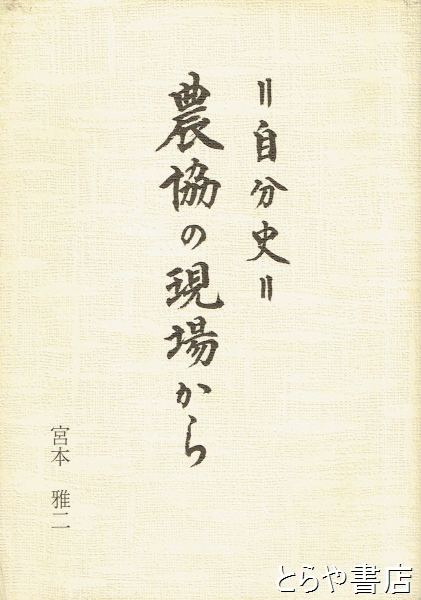 〃自分史〃
農協の現場から
宮本 雅二
とらや書店